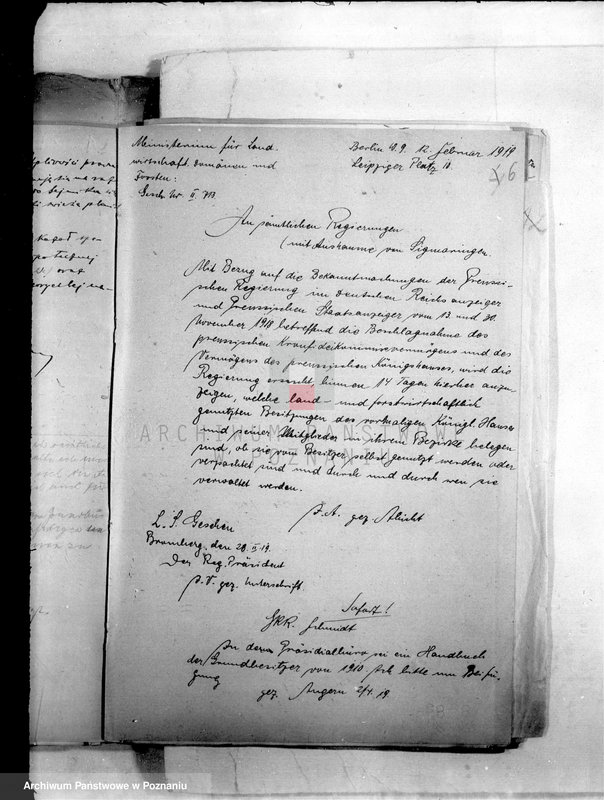 Ministerium für Land.
wirtschaft. Domänen und
Forsten:
Gesch. Nr. II
Berlin W. 9. 12. Februar 1919
Leipziger Platz 10.
6
An sämtlichen Regierungen
(mit Ausnahme von Sigmaringen.
Mit Bezug auf die Bekanntmachungen der Preussi-
schen Regierung im Deutschen Reichsanzeiger
und Preussischen Staatsanzeiger vom 13 und 30.
November 1918 betreffend die Beschlagnahme des
preussischen Kronfideikommissvermögens und des
Vermögens des preussischen Königshauses, wird die
Regierung ersucht, binnen 14 Tagen hierher anzu-
zeigen, welche land- und forstwirtschaftlich
genutzten Besitzungen des vormaligen Königl. Hauses
und seiner Mitglieder in ihrem Bezirke belegen
sind, ob sie vom Besitzer selbst genutzt werden oder
verpachtet sind und durch und durch wen sie
verwaltet werden.
I. A. gez.
L. S. Gesehen
Bromberg, den 20. II 19.
Der Reg. Präsident
I. V. gez. Unterschrift.
Sofort!
Schmidt
In dem Präsidialbüro sei ein Handbuch
der Grundbesitzer von 1910. Ich bitte um Beifü-
gung
gez. Angern 2/4. 19.
ARCHIWUM PAŃSTWOWE
W POZNANIU
Archiwum Państwowe w Poznaniu